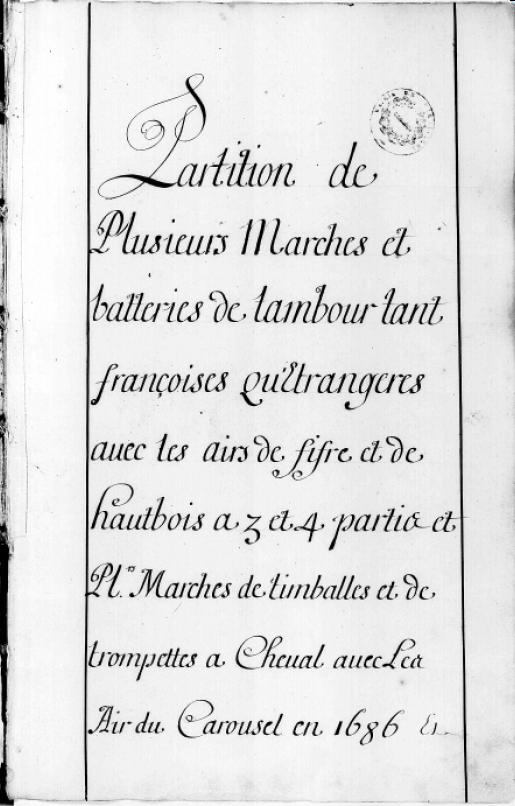 Partition de
Plusieurs Marches et
batteries de tambour tant
françoises qu'Etrangeres
auec les airs de fifre et de
hautbois a 3 et 4 partie et
Pl.rs Marches de timballes et de
trompettes a Cheual auec Les
Air du Carousel en 1686